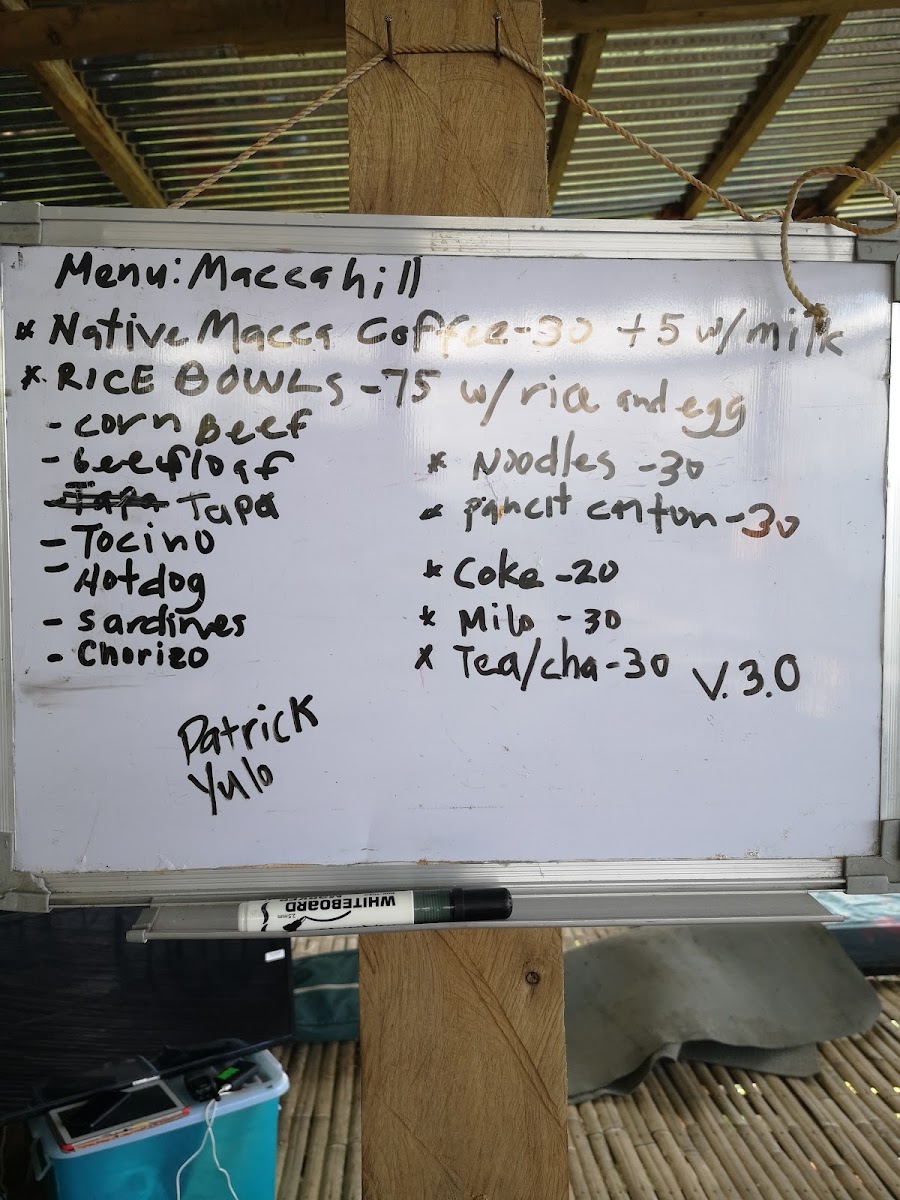 Menu: Maccahill
* Native Macca Coffee-30 +5 w/milk
* RICE BOWLS -75 w/rice and egg
- corn Beef
- beefloaf
- Tapa Tapa
- Tocino
- Hotdog
- sardines
- Chorizo
* Noodles -30
* pancit canton -30
* Coke -20
* Milo - 30
* Tea/cha-30 V.3.0
Patrick
Yulo
WHITEBOARD
MARKER
2.5mm